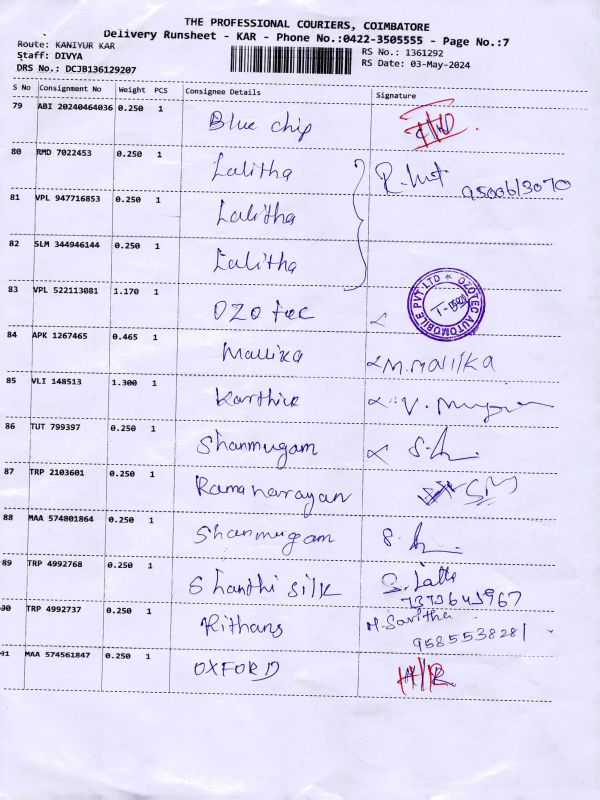 THE PROFESSIONAL COURIERS, COIMBATORE
Delivery Runsheet - KAR - Phone No.:0422-3505555 - Page No.:7
Route: KANIYUR KAR
Staff: DIVYA
DRS No.: DCJB136129207
RS No.: 1361292
RS Date: 03-May-2024
S No Consignment No Weight PCS Consignee Details Signature
79 ABI 20240464036 0.250 1 Blue chip
80 RMD 7022453 0.250 1 Lalitha 9500613070
81 VPL 947716853 0.250 1 Lalitha
82 SLM 344946144 0.250 1 Lalitha
83 VPL 522113081 1.170 1 OZOtec OZOTEC AUTOMOBILE PVT-LTD
84 APK 1267465 0.465 1 Mallika M.Mallika
85 VLI 148513 1.300 1 Karthik
86 TUT 799397 0.250 1 Shanmugam
87 TRP 2103601 0.250 1 Ramanarayan
88 MAA 574801864 0.250 1 Shanmugam
89 TRP 4992768 0.250 1 Shanthi silk
90 TRP 4992737 0.250 1 Rithans M.Savitha
9585538281
91 MAA 574561847 0.250 1 OXFORD